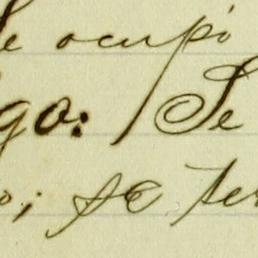 se ocupó
go: Se
o; se ter